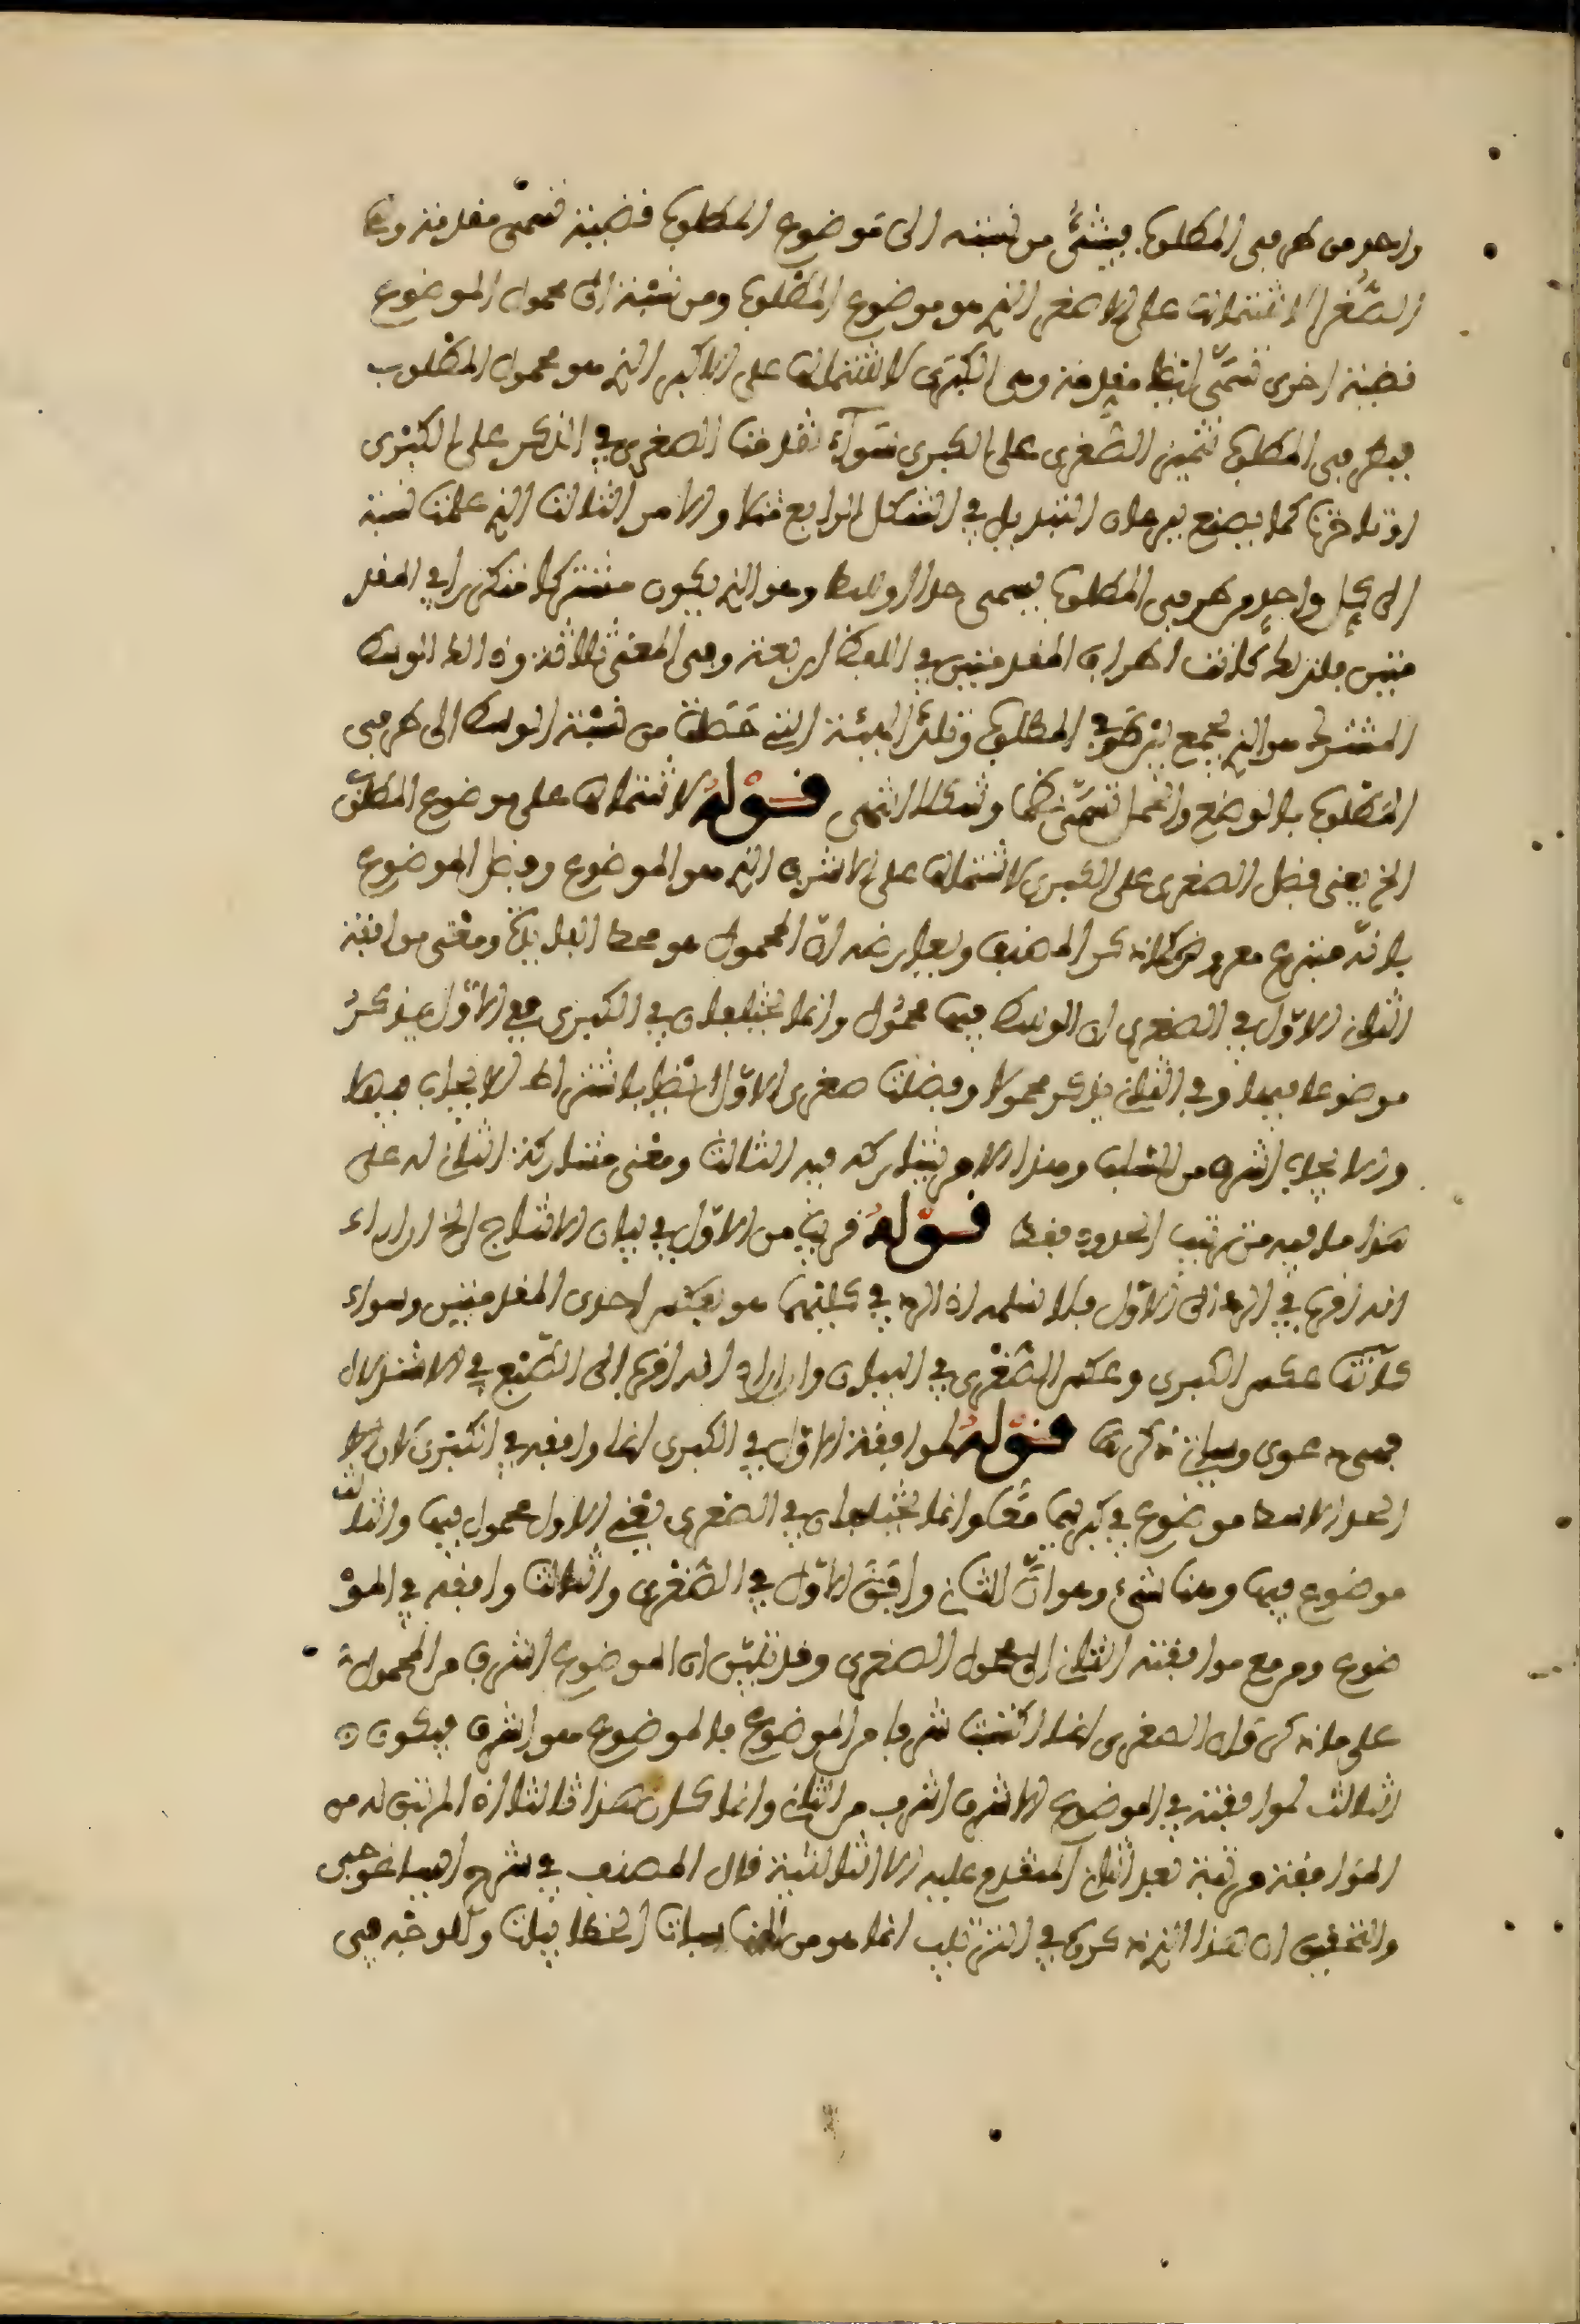 واحد من طرفي المطلوب فينشئ من نسبته الى موضوع المطلوب قضية تسمى مقدمة وهي
الصغرى لاشتمالها على الاصغر الذي هو موضوع المطلوب ومن نسبته الى محمول الموضوع
قضية اخرى تسمى ايضا مقدمة وهي الكبرى لاشتمالها على الاكبر الذي هو محمول المطلوب
فبطرفي المطلوب تتميز الصغرى على الكبرى سواء تقدمت الصغرى في الذكر على الكبرى
او تاخرت كما يصنع ببرهان التبديل في الشكل الرابع مثلا والامر الثالث الذي علمت نسبته
الى كل واحد من طرفي المطلوب يسمى حدا اوسط وهو الذي يكون مشتركا متكررا في المقد
متين فلذلك كانت اطراف المقدمتين في اللفظ اربعة وفي المعنى ثلاثة وذالك الوسط
المشترك هو الذي يجمع بين طرفي المطلوب وتلك الهيئة التي حصلت من نسبة الوسط الى طرفي
المطلوب بالوضع والحمل تسمى نظما وشكلا انتهى قوله لاشتمالها على موضوع المطلوب
الخ يعني فضل الصغرى على الكبرى لاشتمالها على الاشرف الذي هو الموضوع وفضل الموضوع
بانه متبوع معروض كما ذكر المصنف ويعارضه ان المحمول هو محط الفايدة ومعنى موافقة
الثاني الاول في الصغرى ان الوسط فيهما محمول وانما يختلفان في الكبرى ففي الاول يذكر
موضوعا فيها وفي الثاني يذكر محمولا وفضلت صغرى الاول ايضا باشتراط الايجاب فيها
والايجاب اشرف من السلب وهذا الامر يشاركه فيه الثالث ومعنى مشاركة الثاني له على
هذا ما فيه من ترتيب الحدود فقط قوله قريب من الاول في بيان الانتاج الخ ان اراد
انه اقرب في الرد الى الاول فلا نسلمه اذ الرد في كليهما هو بعكس احدى المقدمتين وسواء
كانت عكس الكبرى وعكس الصغرى في البيان وان اراد انه اقرب الى الطبع في الاستدلال
فهي دعوى وسياتي ذكرها قوله لموافقة الاول في الكبرى انما وافقه في الكبرى لان
الحد الاوسط موضوع في كبريهما معا وانما يختلفان في الصغرى يعني الاول محمول فيها والثالث
موضوع فيها وهنا شيء وهو ان الثاني وافق الاول في الصغرى والثالث وافقه في المو
ضوع ومرجع موافقة الثاني الى محمول الصغرى وقد تبين ان الموضوع اشرف من المحمول
على ما ذكر قال الصغرى انما اكتسبت شرفها من الموضوع فالموضوع هو اشرف فيكون
الثالث لموافقته في الموضوع الاشرف اشرف من الثاني وانما كان هذا ثالثا اذ لم تبق له من
الموافقة مرتبة بعد الثاني المتقدم عليه الا الثالثية قال المصنف في شرح ايساغوجي
والتحقيق ان هذا الذي ذكروه في الترتيب انما هو من المناسبات الخطابيات ولا وجه في